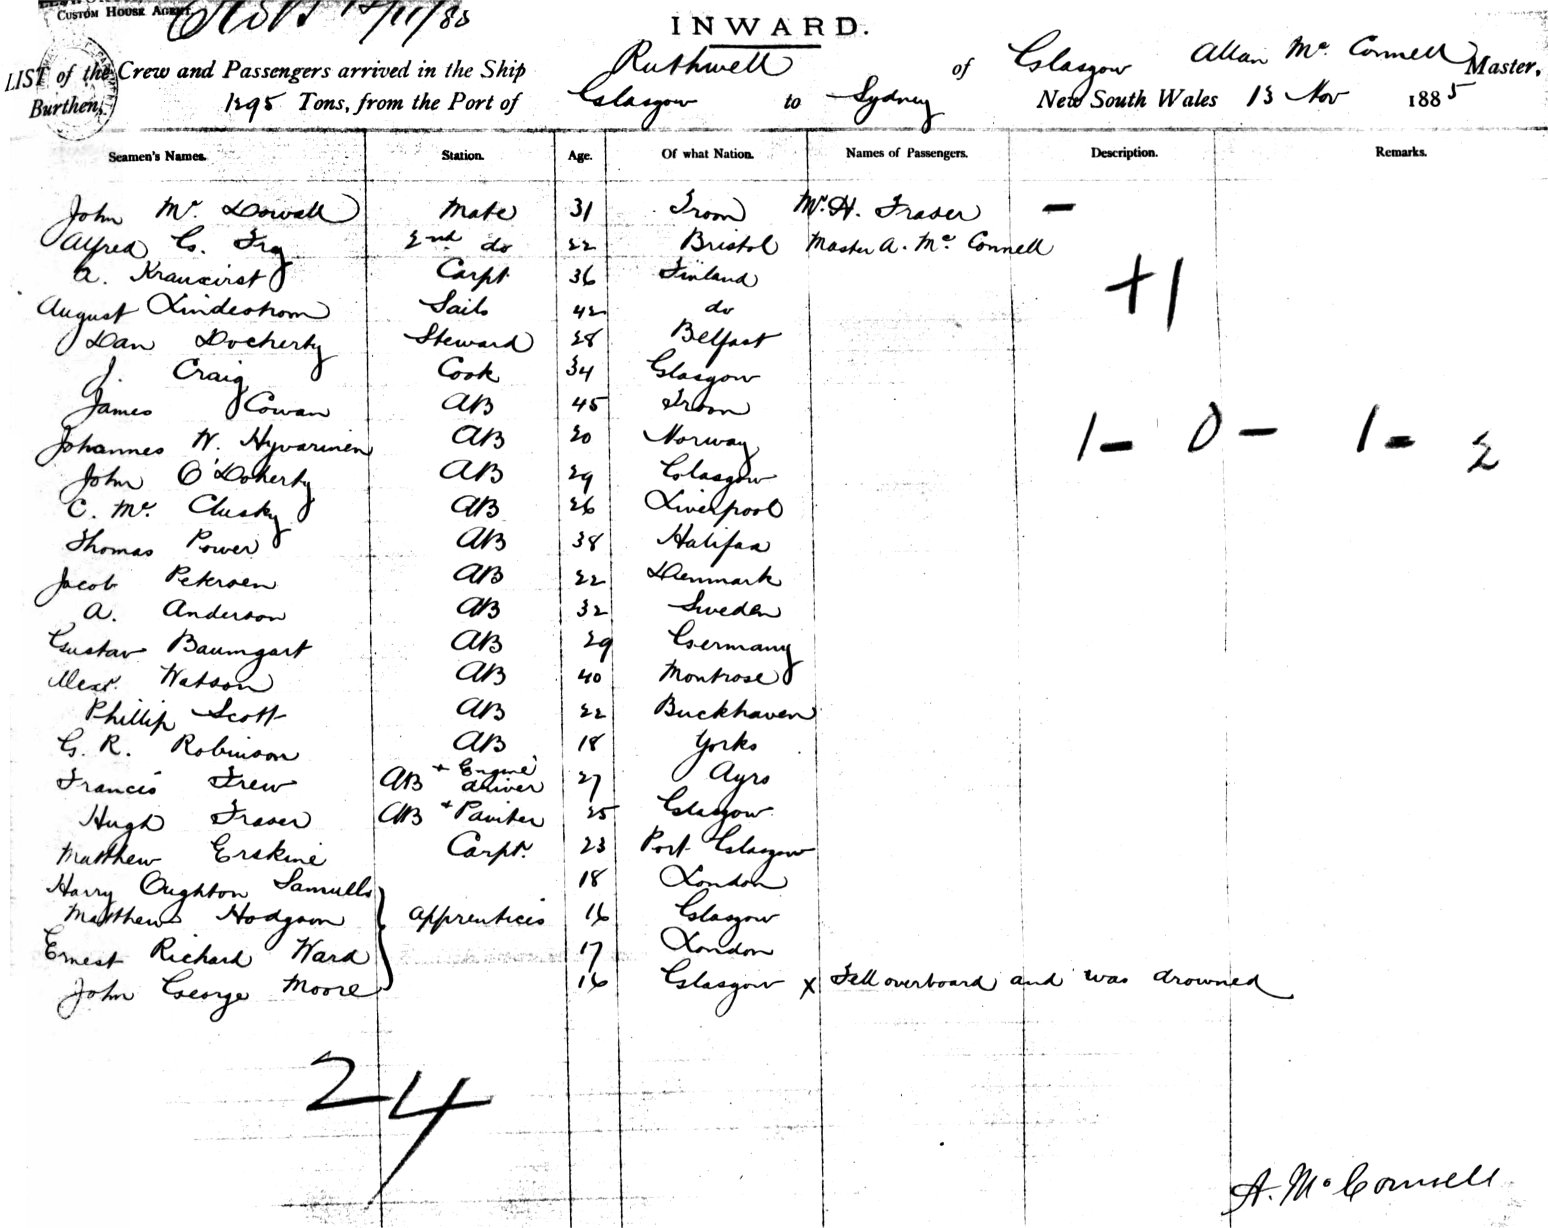 CUSTOM HOUSE AGENT.
INWARD.
LIST of the Crew and Passengers arrived in the Ship Ruthwell of Glasgow Allan Mc. Connell Master,
Burthen, 1295 Tons, from the Port of Glasgow to Sydney New South Wales 13 Nov 1885
Seamen's Names. Station. Age. Of what Nation. Names of Passengers. Description. Remarks.
John Mc. Dowall Mate 31 Troon Mr. H. Fraser –
Alfred C. Fry 2nd do 22 Bristol Master A. Mc. Connell
A. Kranxirst Carpt 36 Finland
+1
August Lindestrom Sails 42 do
Dan Docherty Steward 28 Belfast
J. Craig Cook 34 Glasgow
James Cowan AB 45 Troon
1 – 0 – 1 – 2
Johannes W. Hyvarinen AB 20 Norway
John O'Doherty AB 29 Glasgow
C. Mc. Clusky AB 26 Liverpool
Thomas Power AB 38 Halifax
Jacob Petersen AB 22 Denmark
A. Anderson AB 32 Sweden
Gustav Baumgart AB 29 Germany
Alexr. Watson AB 40 Montrose
Phillip Scott AB 22 Buckhaven
G. R. Robinson AB 18 Yorks
Francis Frew AB + Engine driver 27 Ayrs
Hugh Fraser AB + Painter 25 Glasgow
Matthew Erskine Carpt. 23 Port Glasgow
Harry Oughton Samuells 18 London
Matthew Hodgson Apprentices 16 Glasgow
Ernest Richard Ward 17 London
John George Moore 16 Glasgow x Fell overboard and was drowned
24
A. McConnell